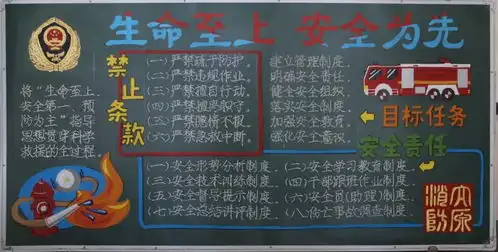 生命至上 安全为先
将“生命至上、
安全第一、预
防为主”指导
思想贯穿科学
救援的全过程。
禁止条款
(一)严禁疏于防护。
(二)严禁违规作业。
(三)严禁擅自行动。
(四)严禁擅离职守。
(五)严禁隐情不报。
(六)严禁急救中断。
建立管理制度。
明确安全责任。
健全安全组织。
落实安全制度。
加强安全教育。
强化安全意识。
目标任务
安全责任
(一)安全形势分析制度。
(二)安全学习教育制度。
(三)安全技术训练制度。
(四)干部跟班作业制度。
(五)安全督导提示制度。
(六)安全员(助理)制度。
(七)安全总结讲评制度。
(八)伤亡事故调查制度。
太原
消防